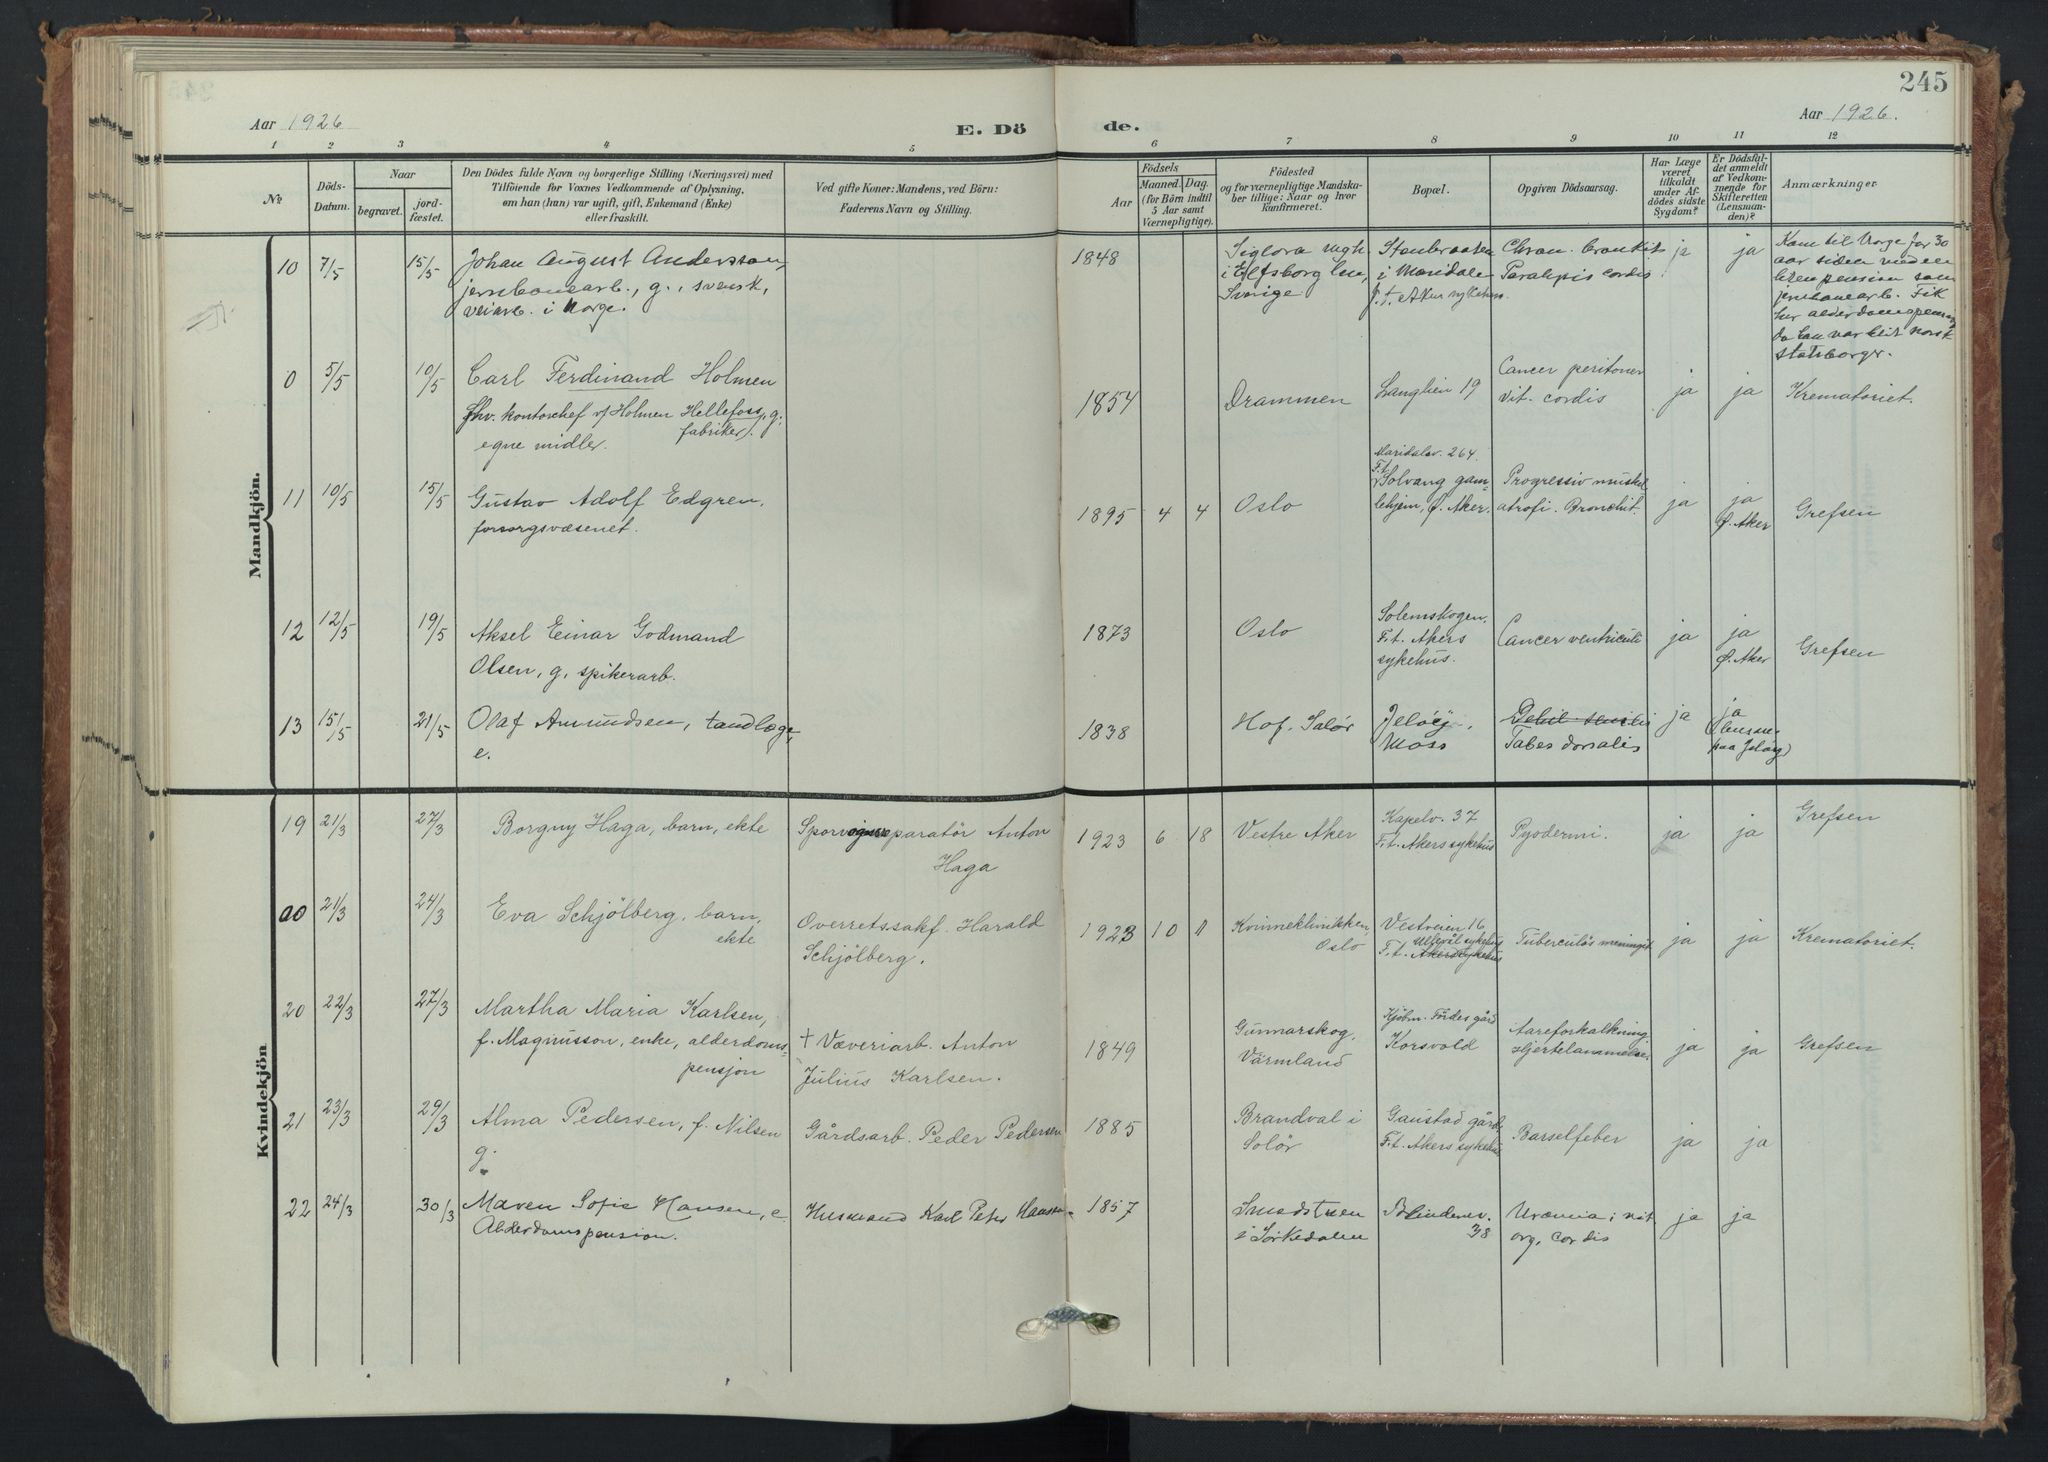 245
Aar 1926
E. Dö
de.
Aar 1926.
1 2 3 4 5 6 7 8 9 10 11 12
No.
Döds-Datum.
Naar
begravet.
jord-fæstet.
Den Dödes fulde Navn og borgerlige Stilling (Næringsvei) med
Tilföiende for Voxnes Vedkommende af Oplysning,
om han (hun) var ugift, gift, Enkemand (Enke)
eller fraskilt.
Ved gifte Koner: Mandens, ved Börn:
Faderens Navn og Stilling.
Födsels
Aar
Maaned. Dag.
(for Börn indtil
5 Aar samt
Værnepligtige).
Födested
og for værnepligtige Mandska-
ber tillige: Naar og hvor
konfirmeret.
Bopæl.
Opgiven Dödsaarsag.
Har Læge
været
tilkaldt
under Af-
dödes sidste
Sygdom?
Er Dödsfal-
det anmeldt
af Vedkom-
mende for
Skifteretten
(Lensman-
den)?
Anmærkninger
Mandkjön.
10 7/5 15/5 Johan August Andersson,
jernbanearb., g., svensk,
veiarb. i Norge.
1848
i Elfsborg len,
Sverige
i Maridalen
F.t. Aker sykehus.
Chron. bronkit
Paralysis cordis
ja
ja
Kom til Norge for 30
aar siden uden
pension som
jernbanearb. Fik
her alderdomspension
da han var blit norsk
statsborger.
0 5/5 10/5 Carl Ferdinand Holmen
fhv. kontorchef v/ Holmen Hellefoss, g.
fabriker).
egne midler.
1854 Drammen
Langlien 19
Cancer peritoner
vit. cordis
ja ja Krematoriet.
11 10/5 15/5 Gustav Adolf Edgren,
forsorgsvæsenet.
1895 4 4 Oslo
Maridalsv. 264.
F.t.
Solvang gam-
lehjem, Ø. Aker.
Progressiv muskel
atrofi. Bronchit.
ja
ja
Ø. Aker
Grefsen
12 12/5 19/5 Aksel Einar Godmand
Olsen, g, spikerarb.
1873 Oslo
Solemskogen.
F.t. Akers
sykehus.
Cancer ventriculi
ja
ja
Ø. Aker
Grefsen
13 15/5 21/5 Olaf Amundsen, tandlæge,
e.
1838 Hof. Solør
Jeløy,
Moss
Debil. senilis
Tabes dorsalis
ja
ja
(lensm.
paa Jeløy)
Kvindekjön
19 21/3 27/3 Borgny Haga, barn, ekte
Sporvognsreparatör Anton
Haga
1923 6 18 Vestre Aker
Kapelv. 37
F.t. Akers sykehus
Pyodermi.
ja ja Grefsen
00 21/3 24/3 Eva Schjölberg, barn,
ekte
Overretssakf. Harald
Schjölberg.
1923 10 1
Kvinneklinikken,
Oslo
Vestveien 16
Ullevål sykehus
F.t. Akers sykehus
Tuberculøs meningit
ja ja Krematoriet.
20 22/3 27/3 Martha Maria Karlsen,
f. Magnusson, enke, alderdoms-
pensjon
+ Væveriarb. Anton
Julius Karlsen.
1849
Gunnarskog,
Värmland
Kjøbm. Fördes gård
Korsvold
Aareforkalkning
Hjertelammelse
ja ja Grefsen
21 23/3 29/3 Alma Pedersen, f. Nilsen
g.
Gårdsarb. Peder Pedersen
1885
Brandval i
Solör
Gaustad gård
F.t. Akers sykehus
Barselfeber
ja ja
22 24/3 30/3 Maren Sofie Hansen, e.
Alderdomspension.
Husmand Karl Peter Hansen
1857
i Sörkedalen
Blindernv.
38
Uræmia; vit.
org. cordis
ja ja